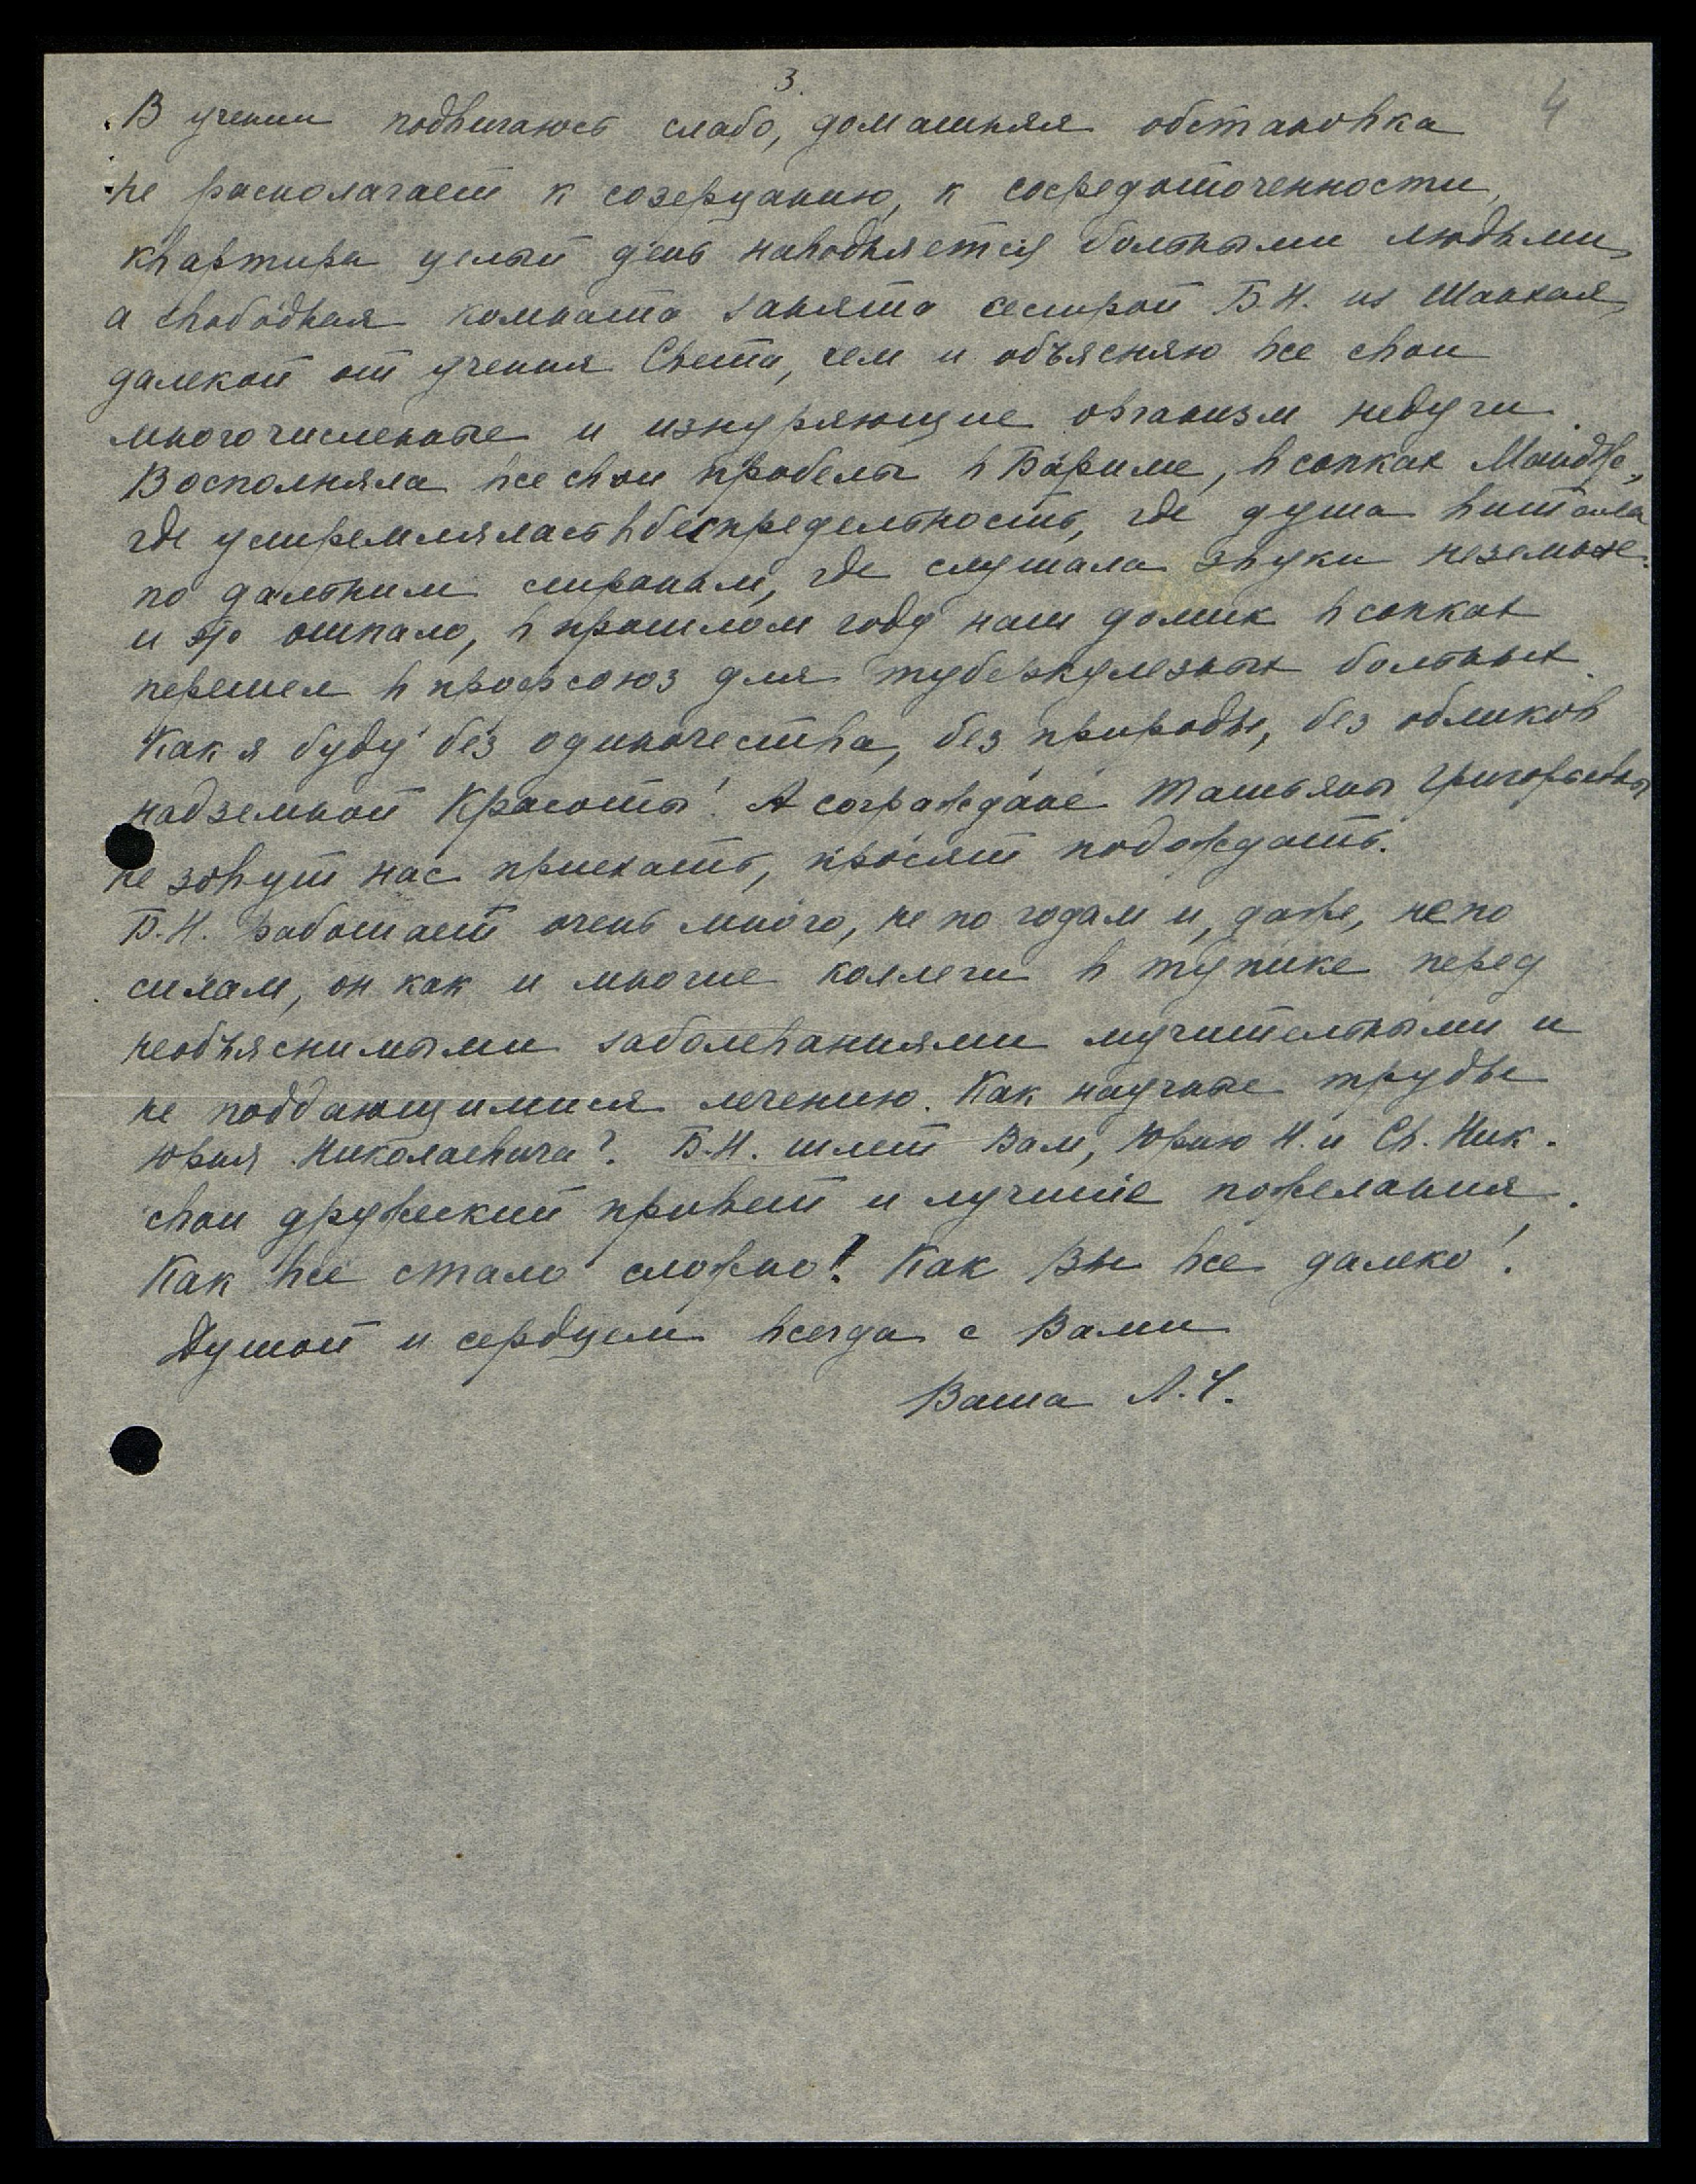 3.
4
В учении подвигаюсь слабо, домашняя обстановка
не располагает к созерцанию, к сосредоточенности,
квартира целый день наводняется больными людьми,
а свободная комната занята сестрой Б.Н. из Шанхая,
далекой от учения Света, чем и объясняю все свои
многочисленные и изнуряющие организм недуги.
Восполняла все свои пробелы в Бариме, в сопках Мандж.,
где устремлялась в беспредельность, где душа витала
по дальним странам, где слушала звуки неземные.
и это отпало, в прошлом году наш домик в сопках
перешел в профсоюз для туберкулезных больных.
Как я буду без одиночества, без природы, без обликов
надземной Красоты! А сограждане Татьяны Григорьевны
не зовут нас приехать, просят подождать.
Б.Н. работает очень много, не по годам и, даже, не по
силам, он как и многие коллеги в тупике перед
необъяснимыми заболеваниями мучительными и
не поддающимися лечению. Как научные труды
Юрия Николаевича? Б.Н. шлет Вам, Юрию Н. и Св. Ник.
свой дружеский привет и лучшие пожелания.
Как все стало сложно! Как Вы все далеко!
Душой и сердцем всегда с Вами
Ваша А.Ч.